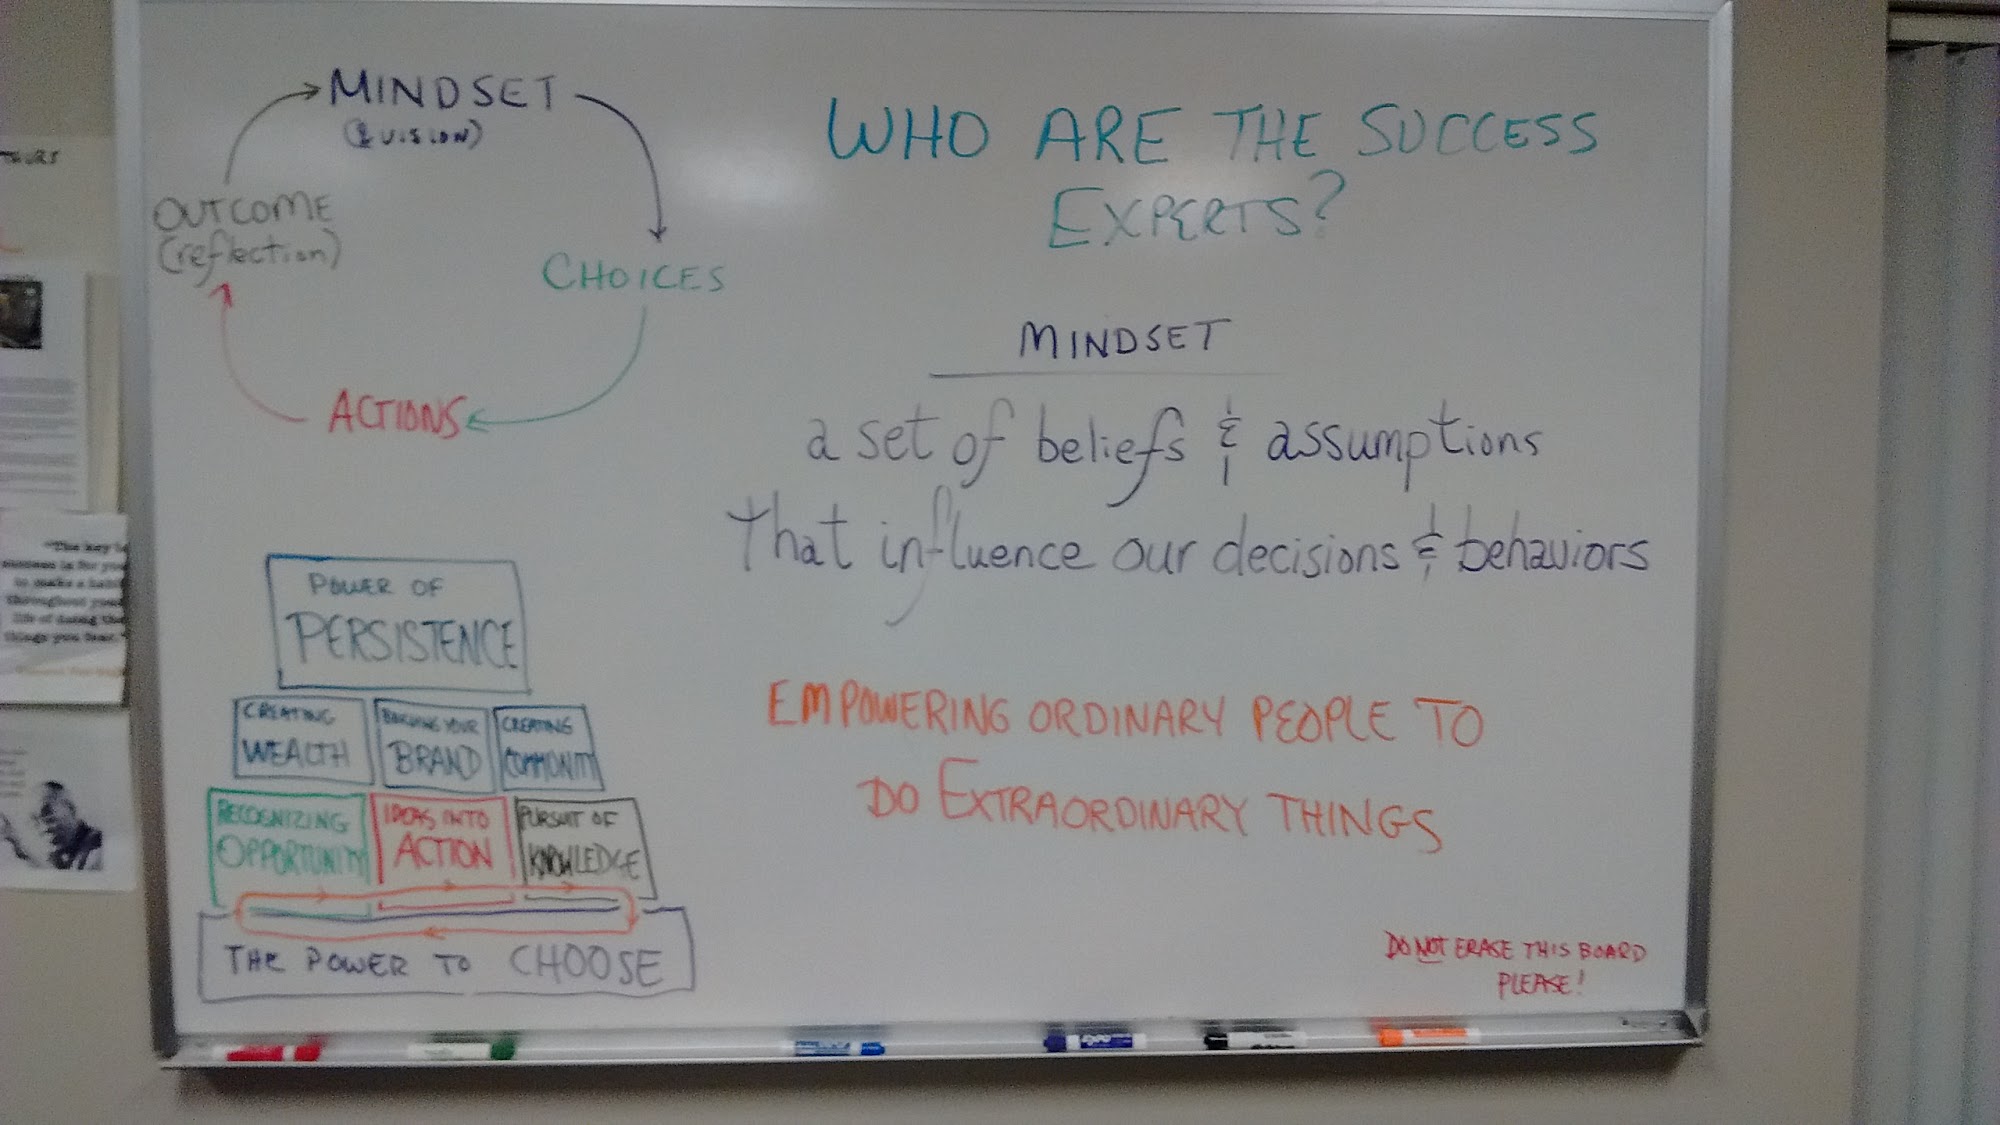 MINDSET
(& VISION)
OUTCOME
(reflection)
CHOICES
ACTIONS
WHO ARE THE SUCCESS
EXPERTS?
MINDSET
a set of beliefs & assumptions
That influence our decisions & behaviors
EMPOWERING ORDINARY PEOPLE TO
DO EXTRAORDINARY THINGS
POWER OF
PERSISTENCE
CREATING
WEALTH
BUILDING YOUR
BRAND
CREATING
COMMUNITY
RECOGNIZING
OPPORTUNITY
IDEAS INTO
ACTION
PURSUIT OF
KNOWLEDGE
THE POWER TO CHOOSE
DO NOT ERASE THIS BOARD
PLEASE!
"The key to
success is for you
to make a habit
throughout your
life of doing the
things you fear."